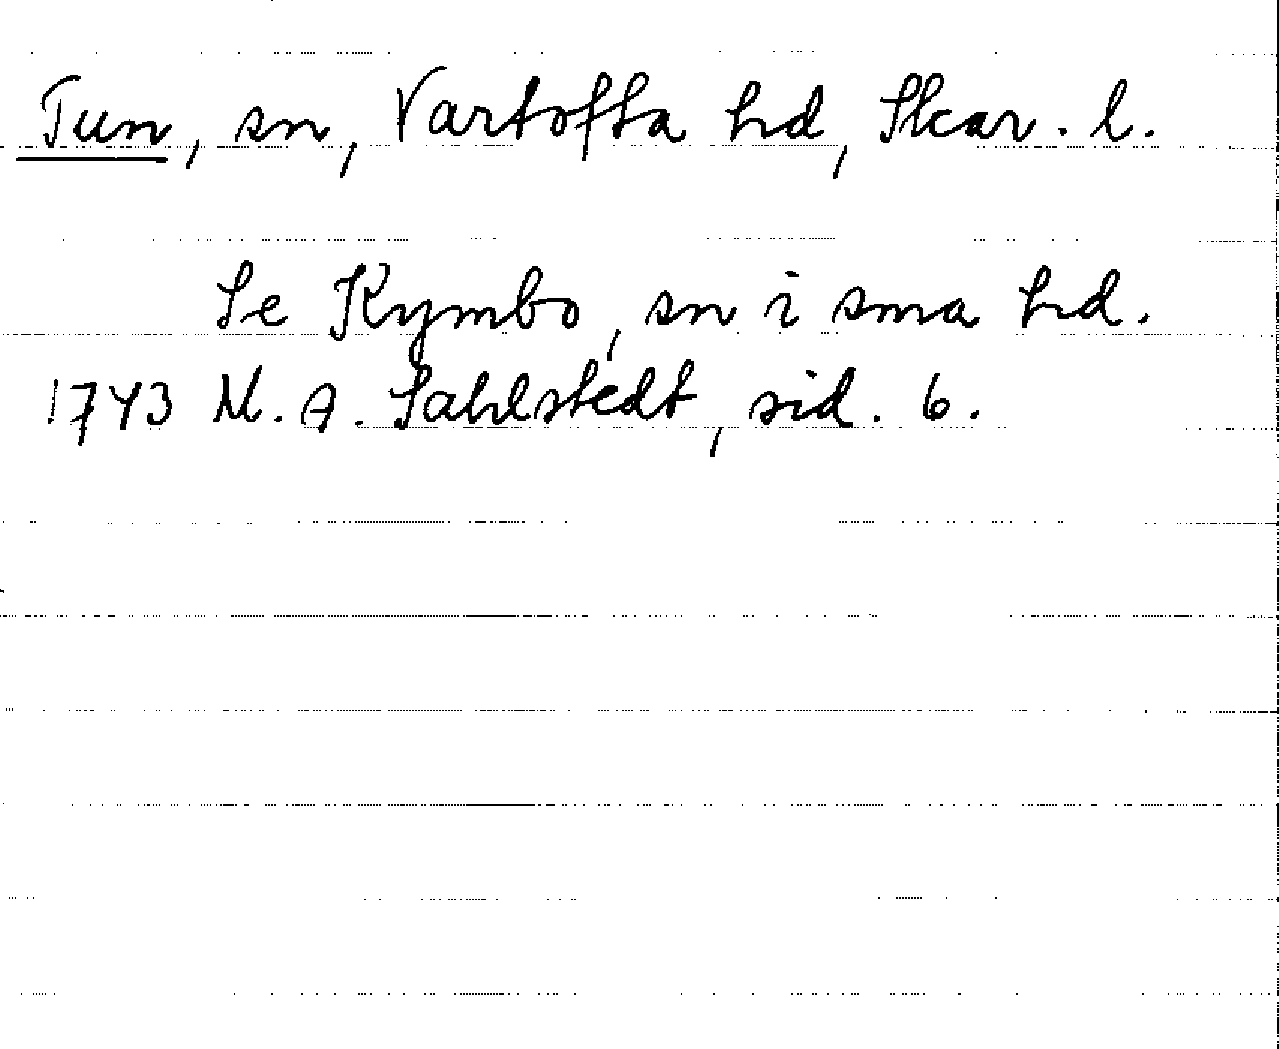 Tun, sn, Vartofta hd, Skar. l.
Se Kymbo, sn i sma hd.
1743 M. A. Sahlstedt, sid. 6.